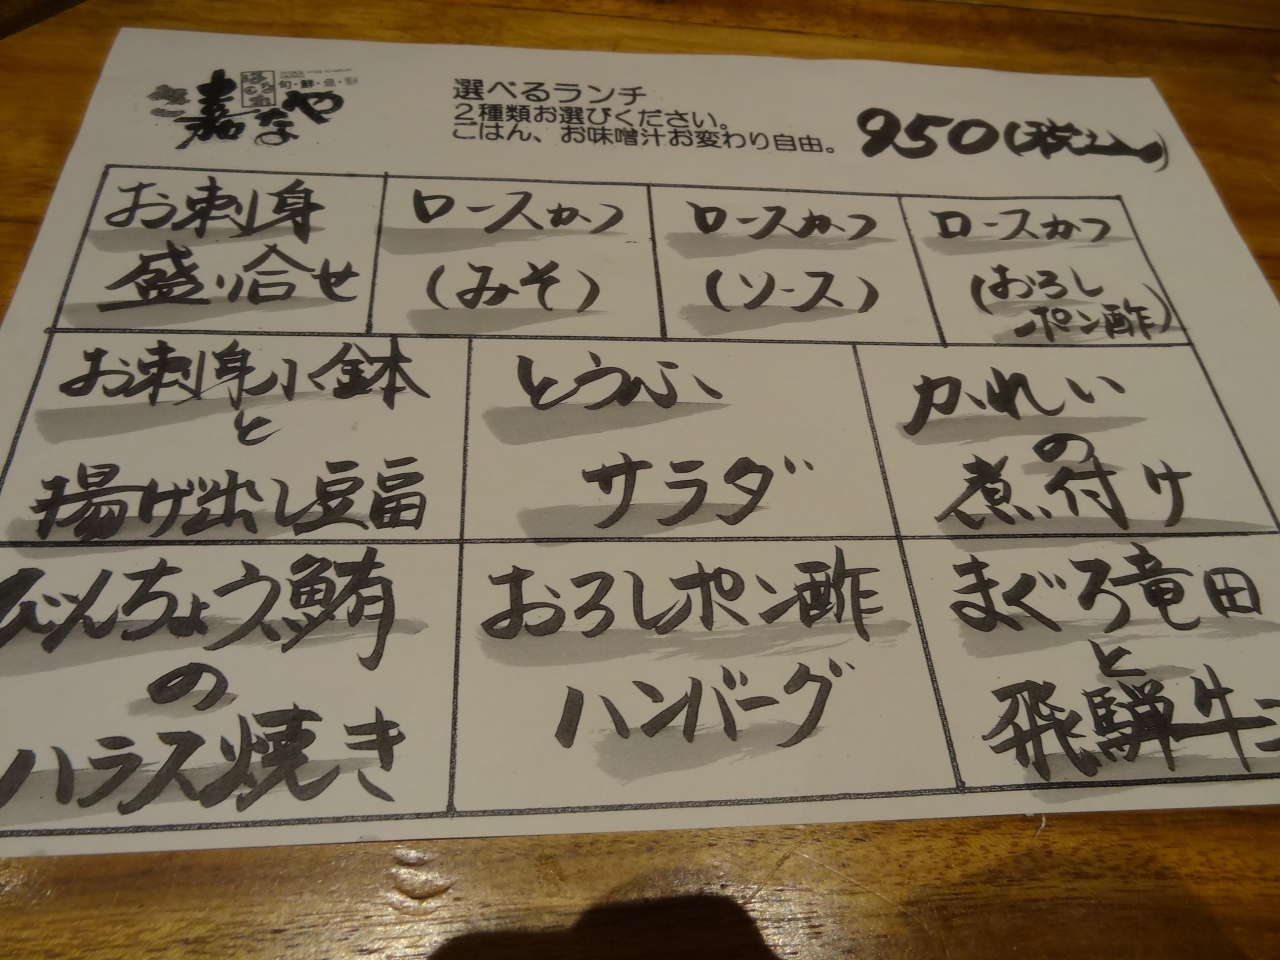 嘉なや
旬・鮮・魚・彩
選べるランチ
2種類お選びください。
ごはん、お味噌汁お変わり自由。
950(税込)
お刺身
盛り合せ
ロースかつ
(みそ)
ロースかつ
(ソース)
ロースかつ
(おろし
ポン酢)
お刺身小鉢
と
揚げ出し豆富
とうふ
サラダ
かれい
の
煮付け
びんちょう鮪
の
ハラス焼き
おろしポン酢
ハンバーグ
まぐろ竜田
と
飛騨牛コ